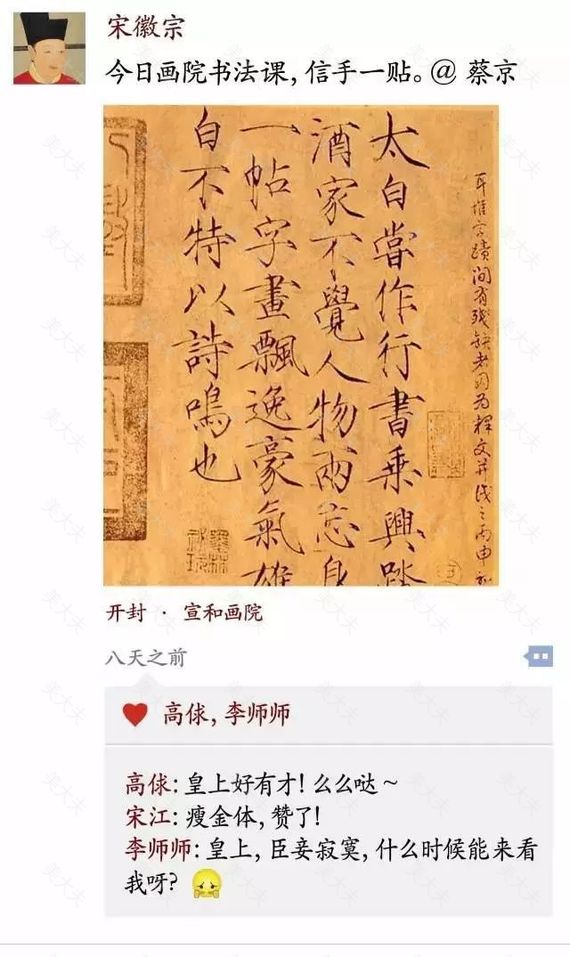 宋徽宗
今日画院书法课,信手一贴。@ 蔡京
字蹟間有殘缺
太白嘗作行書乗興踏
酒家不覺人物兩忘身
一帖字畫飄逸豪氣雄
白不特以詩鳴也
开封 · 宣和画院
八天之前
高俅,李师师
高俅:皇上好有才!么么哒~
宋江:瘦金体,赞了!
李师师:皇上,臣妾寂寞,什么时候能来看
我呀?
美大夫